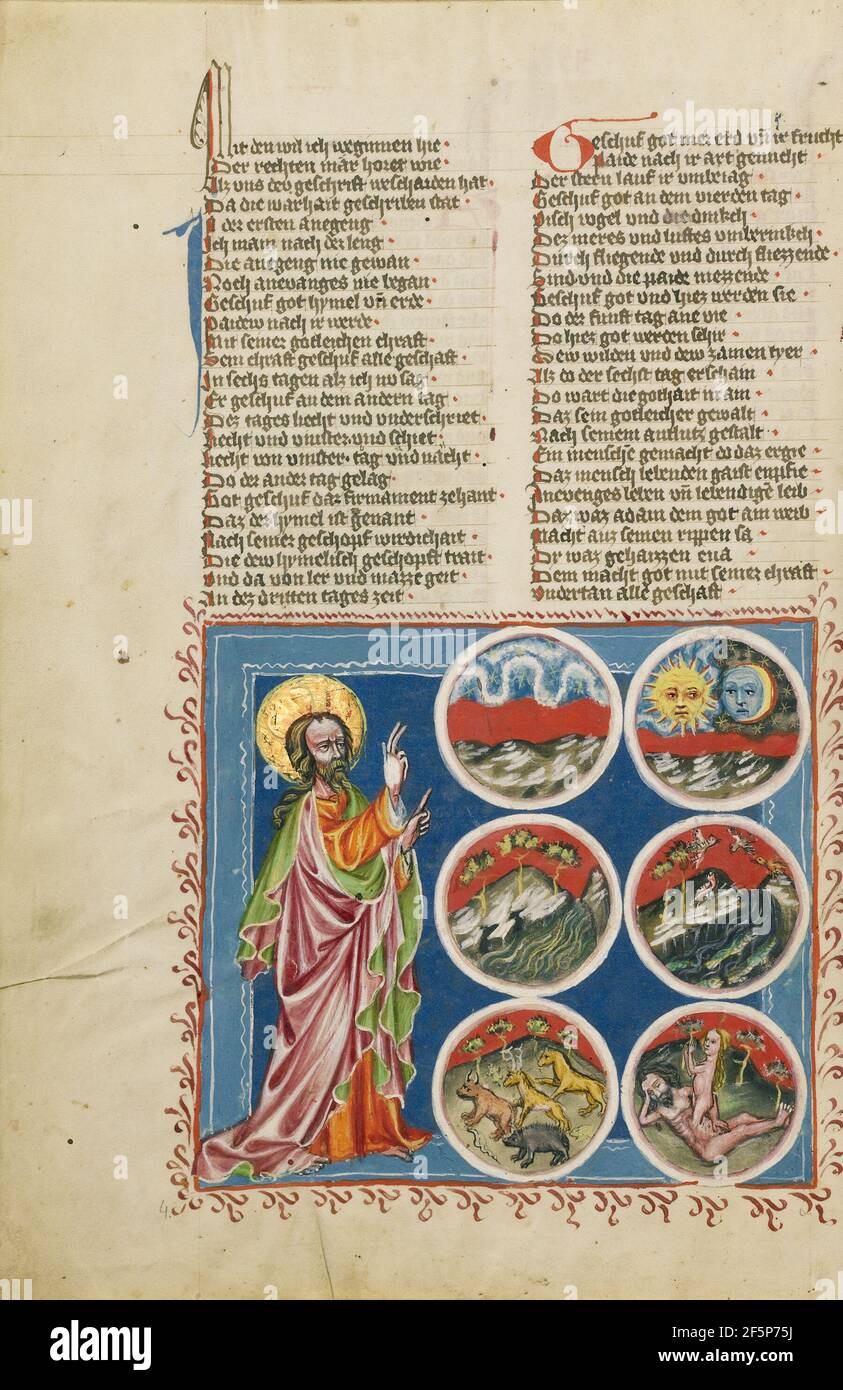 Mit den wil ich weginnen hie ·
Der rechten mär horet wie ·
Alz uns dev geschrift weschaiden hat ·
Da die warhait geschriben stat ·
der ersten anegeng ·
Ich main nach der leng ·
Die anegeng nie gewan ·
Noch anevanges nie began ·
Geschuf got hymel vn̄ erde ·
Paidew nach ir werde ·
Mit seiner gotleichen chraft ·
Sein chraft geschuf alle geschaft ·
In sechs tagen alz ich nv sag ·
Er geschuf an dem andern tag ·
Dez tages liecht vnd vnderschriet ·
liecht vnd vinster vnd schiet ·
liecht von vinster · tag vnd nacht ·
Do der ander tag gelag ·
Got geschuf daz firmament zehant ·
Daz der hymel ist genant ·
Nach seiner geschopf wirdichait ·
Die dew hymelisch geschopft trait ·
vnd da von ler vnd mazze geit ·
In dez dritten tages zeit ·
Geschuf got mer erd vn̄ ir frucht
Paide nach ir art genucht ·
Der stern lauf ir vmbeiag ·
Geschuf got an dem vierden tag ·
visch vogel vnd die ·
Dez meres vnd luftes ·
Durch fliegende vnd durch fliezzende ·
Sind vnd die paide niezzende ·
Geschuf got vnd hiez werden sie ·
Do der funft tag ane vie ·
Do hiez got werden schir ·
Dew wilden vnd dew zamen tyer ·
Alz do der sechst tag erschain ·
Do wart die gothait in ain ·
Daz sein gotleicher gewalt ·
Nach seinem antlutz gestalt ·
Ein mensche gemacht do daz ergie ·
Daz mensch lebenden gaist enpfie ·
Anevenges leben vn̄ lebendigē leib ·
Daz waz adam dem got ain weib ·
Macht auz seinen rippen sa ·
Dy waz gehaizzen eua ·
Dem macht got mit seiner chraft ·
vndertan alle geschaft ·
4
alamy
Image ID: 2F5P75J
www.alamy.com